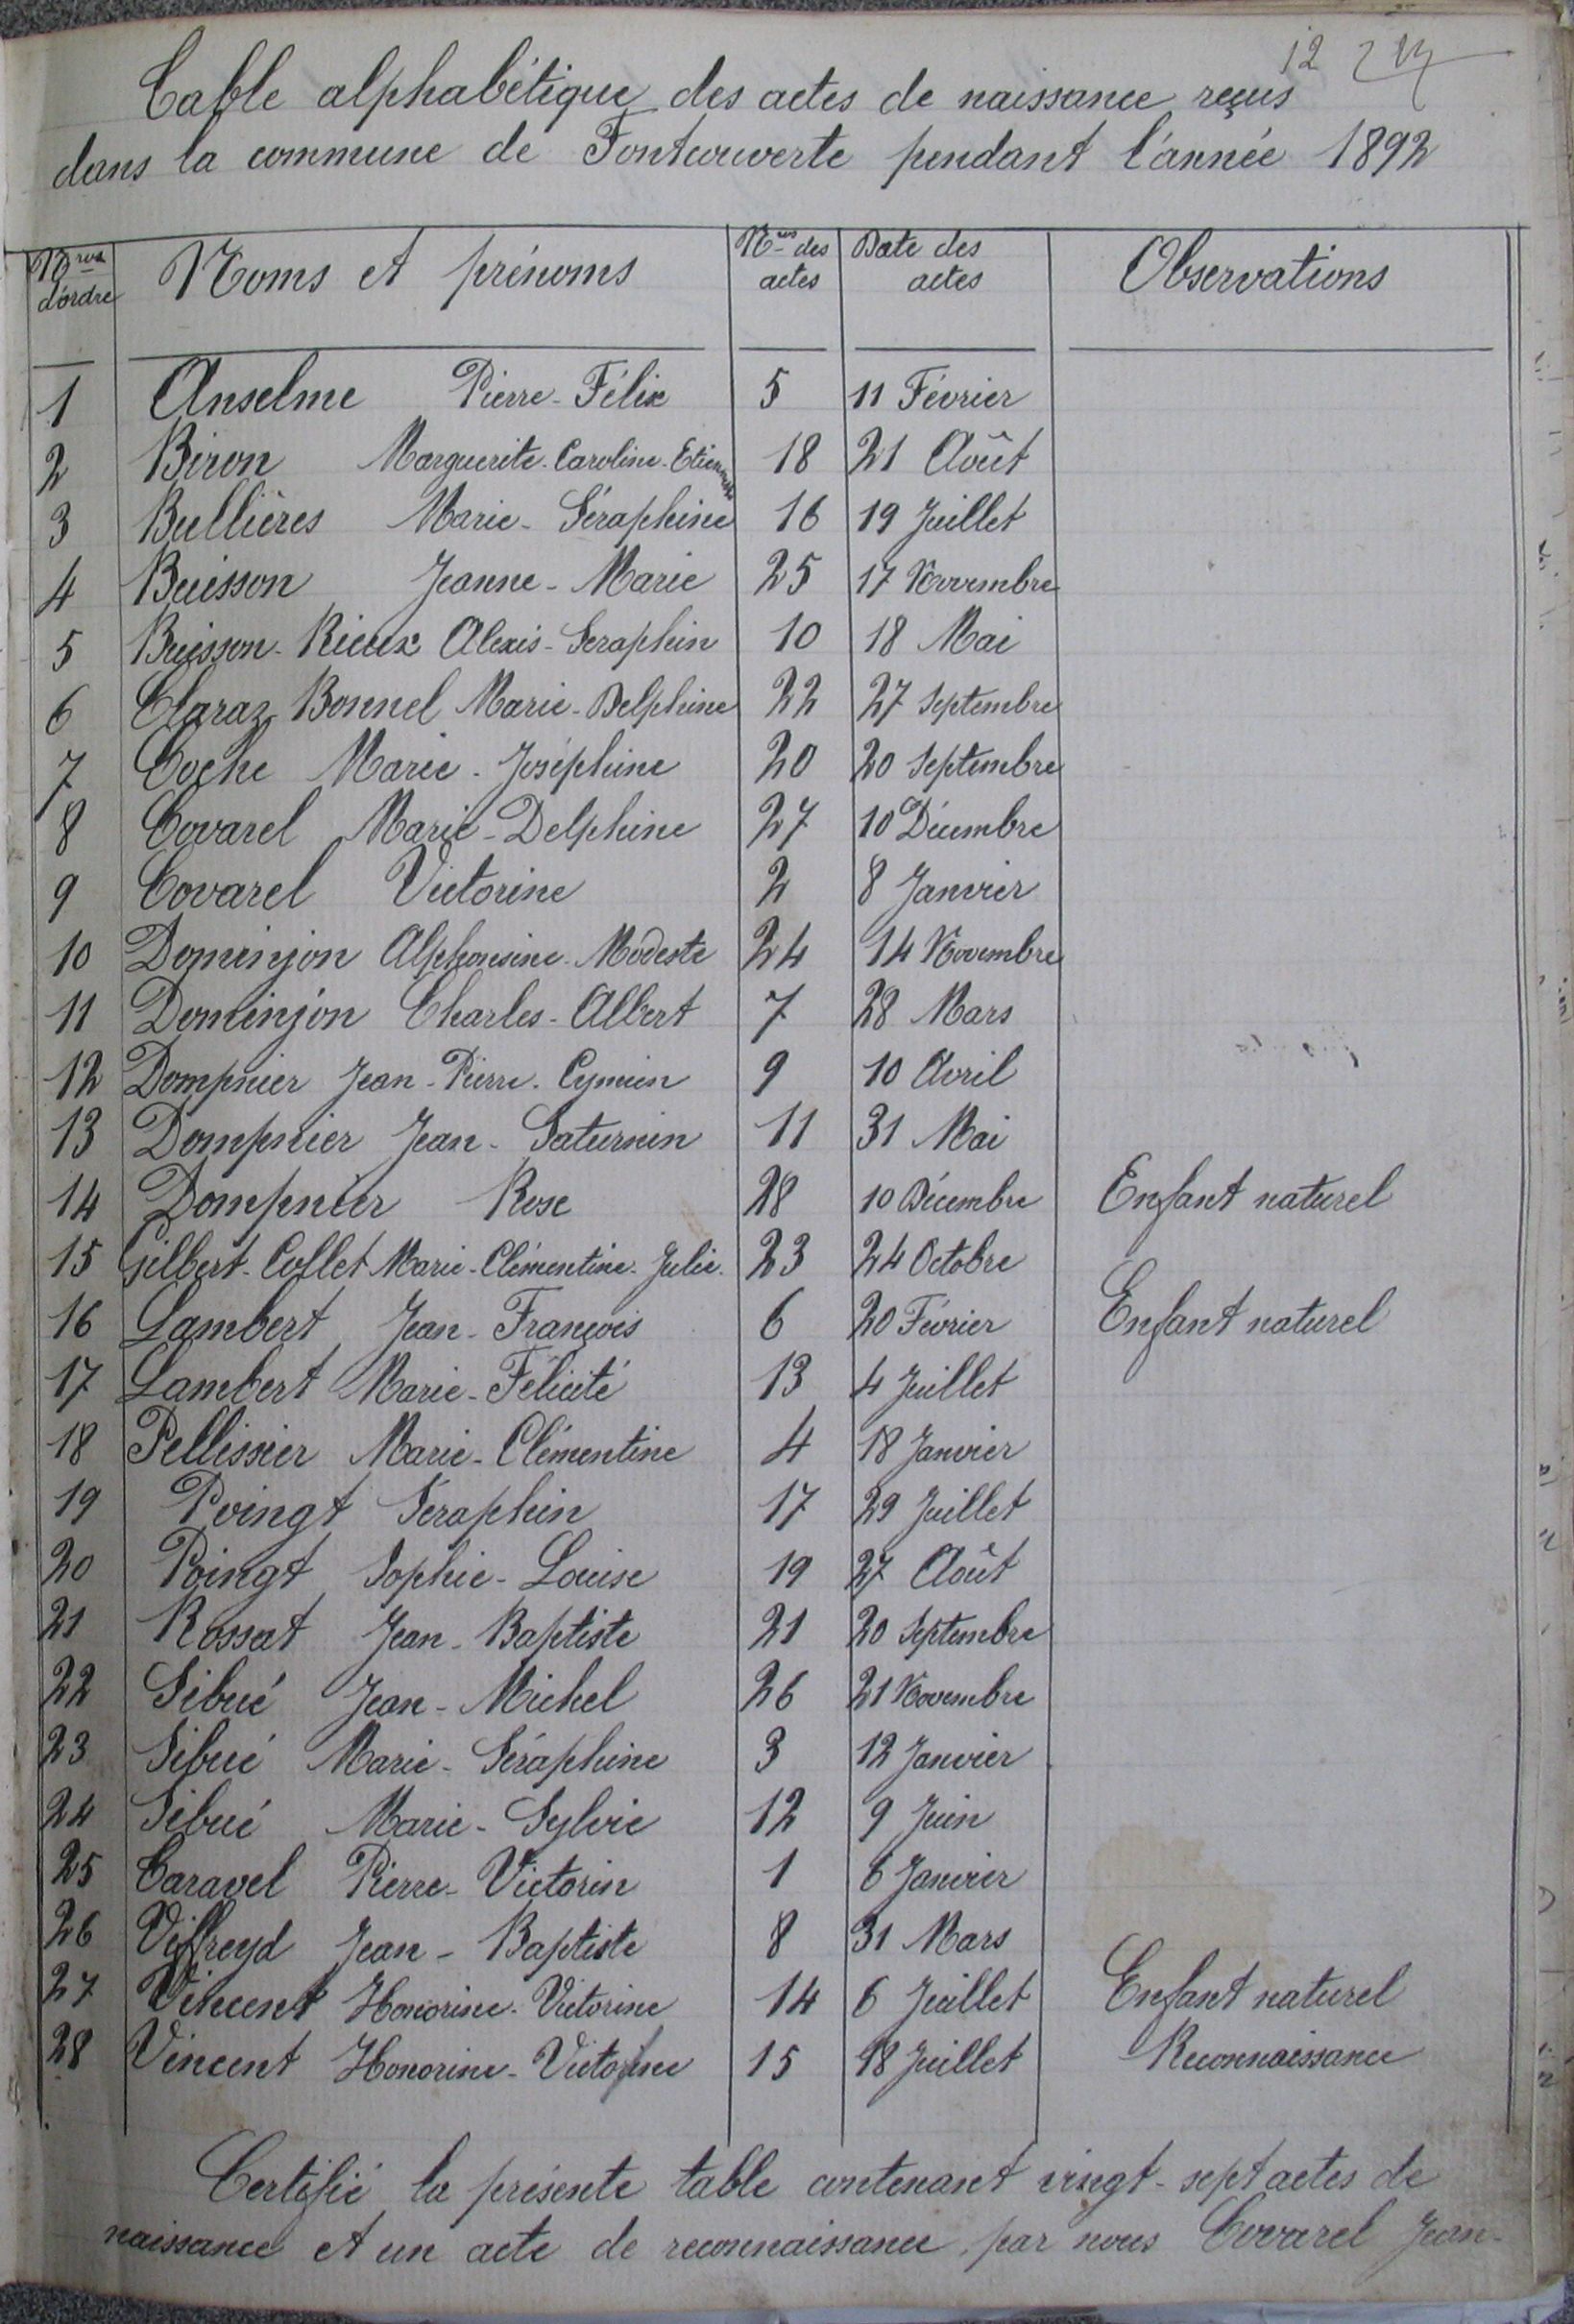 12
Table alphabétique des actes de naissance reçus
dans la commune de Fontcouverte pendant l'année 1892
Nros d'ordre | Noms et prénoms | Nros des actes | Date des actes | Observations
1 Anselme Pierre-Félix 5 11 Février
2 Biron Marguerite-Caroline-Etiennette 18 21 Août
3 Bullières Marie-Séraphine 16 19 Juillet
4 Buisson Jeanne-Marie 25 17 Novembre
5 Buisson-Rieux Alexis-Seraphin 10 18 Mai
6 Claraz-Bonnel Marie-Delphine 22 27 Septembre
7 Coche Marie-Joséphine 20 20 Septembre
8 Covarel Marie-Delphine 27 10 Décembre
9 Covarel Victorine 2 8 Janvier
10 Dominjon Alphonsine-Modeste 24 14 Novembre
11 Dominjon Charles-Albert 7 28 Mars
12 Dompnier Jean-Pierre- 9 10 Avril
13 Dompnier Jean-Saturnin 11 31 Mai
14 Dompnier Rose 28 10 Décembre Enfant naturel
15 Gilbert-Collet Marie-Clémentine-Julie. 23 24 Octobre
16 Lambert Jean-François 6 20 Février Enfant naturel
17 Lambert Marie-Félicité 13 4 Juillet
18 Pellissier Marie-Clémentine 4 18 Janvier
19 Poingt Séraphin 17 29 Juillet
20 Poingt Sophie-Louise 19 27 Août
21 Rossat Jean-Baptiste 21 20 Septembre
22 Sibué Jean-Michel 26 21 Novembre
23 Sibué Marie-Séraphine 3 12 Janvier
24 Sibué Marie-Sylvie 12 9 Juin
25 Taravel Pierre-Victorin 1 6 Janvier
26 Viffreyd Jean-Baptiste 8 31 Mars
27 Vincent Honorine-Victorine 14 6 Juillet Enfant naturel
28 Vincent Honorine-Victorine 15 18 Juillet Reconnaissance
Certifié la présente table contenant vingt-sept actes de
naissance et un acte de reconnaissance, par nous Covarel Jean-